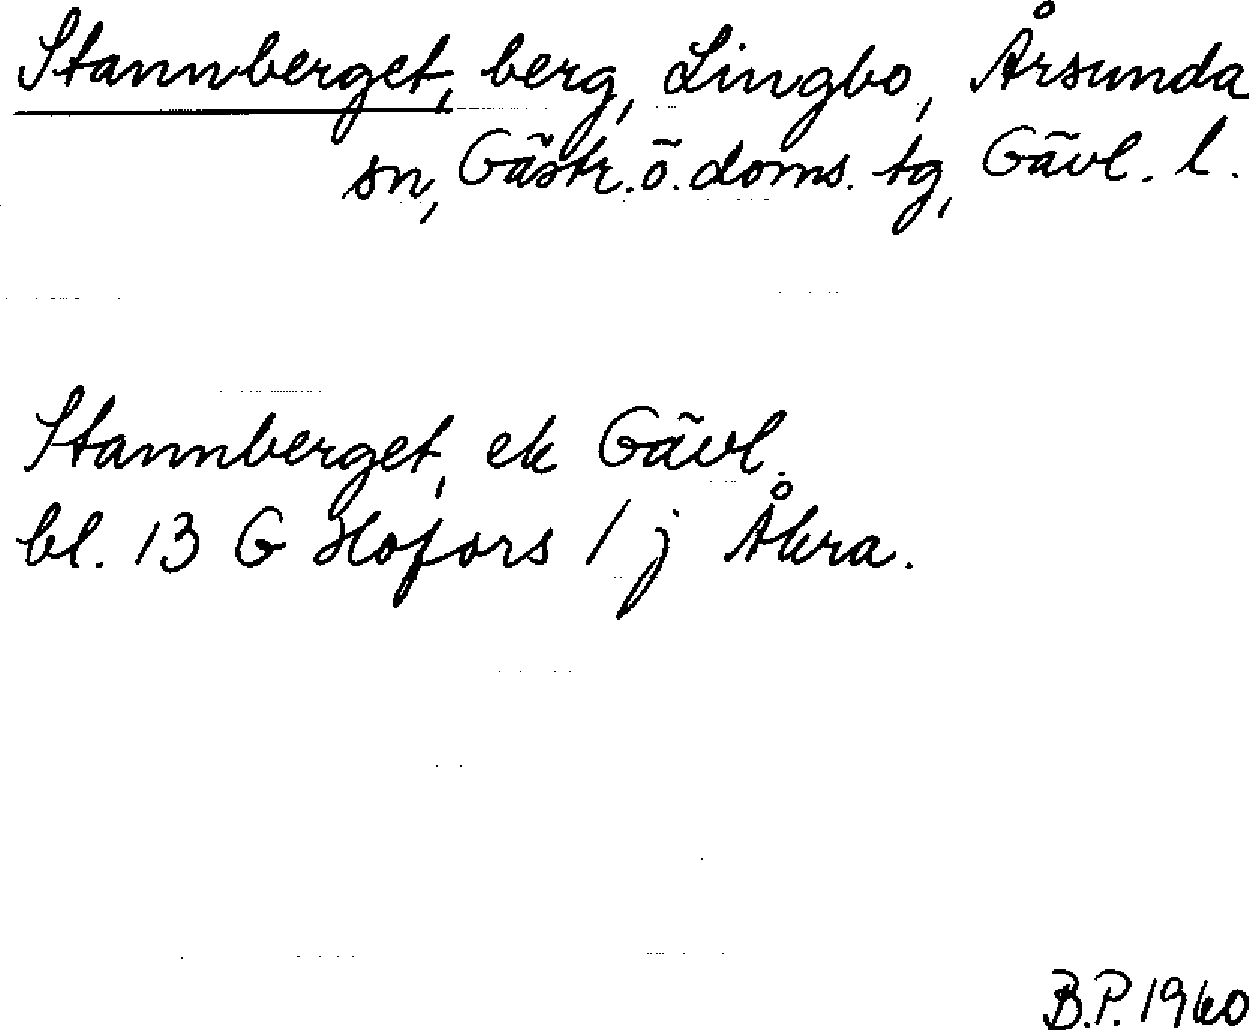 Stannberget, berg, Lingbo, Årsunda
sn, Gästr. ö. doms. tg, Gävl. l.
Stannberget, ek Gävl.
bl. 13 G Hofors / j Åkra.
B.P. 1960